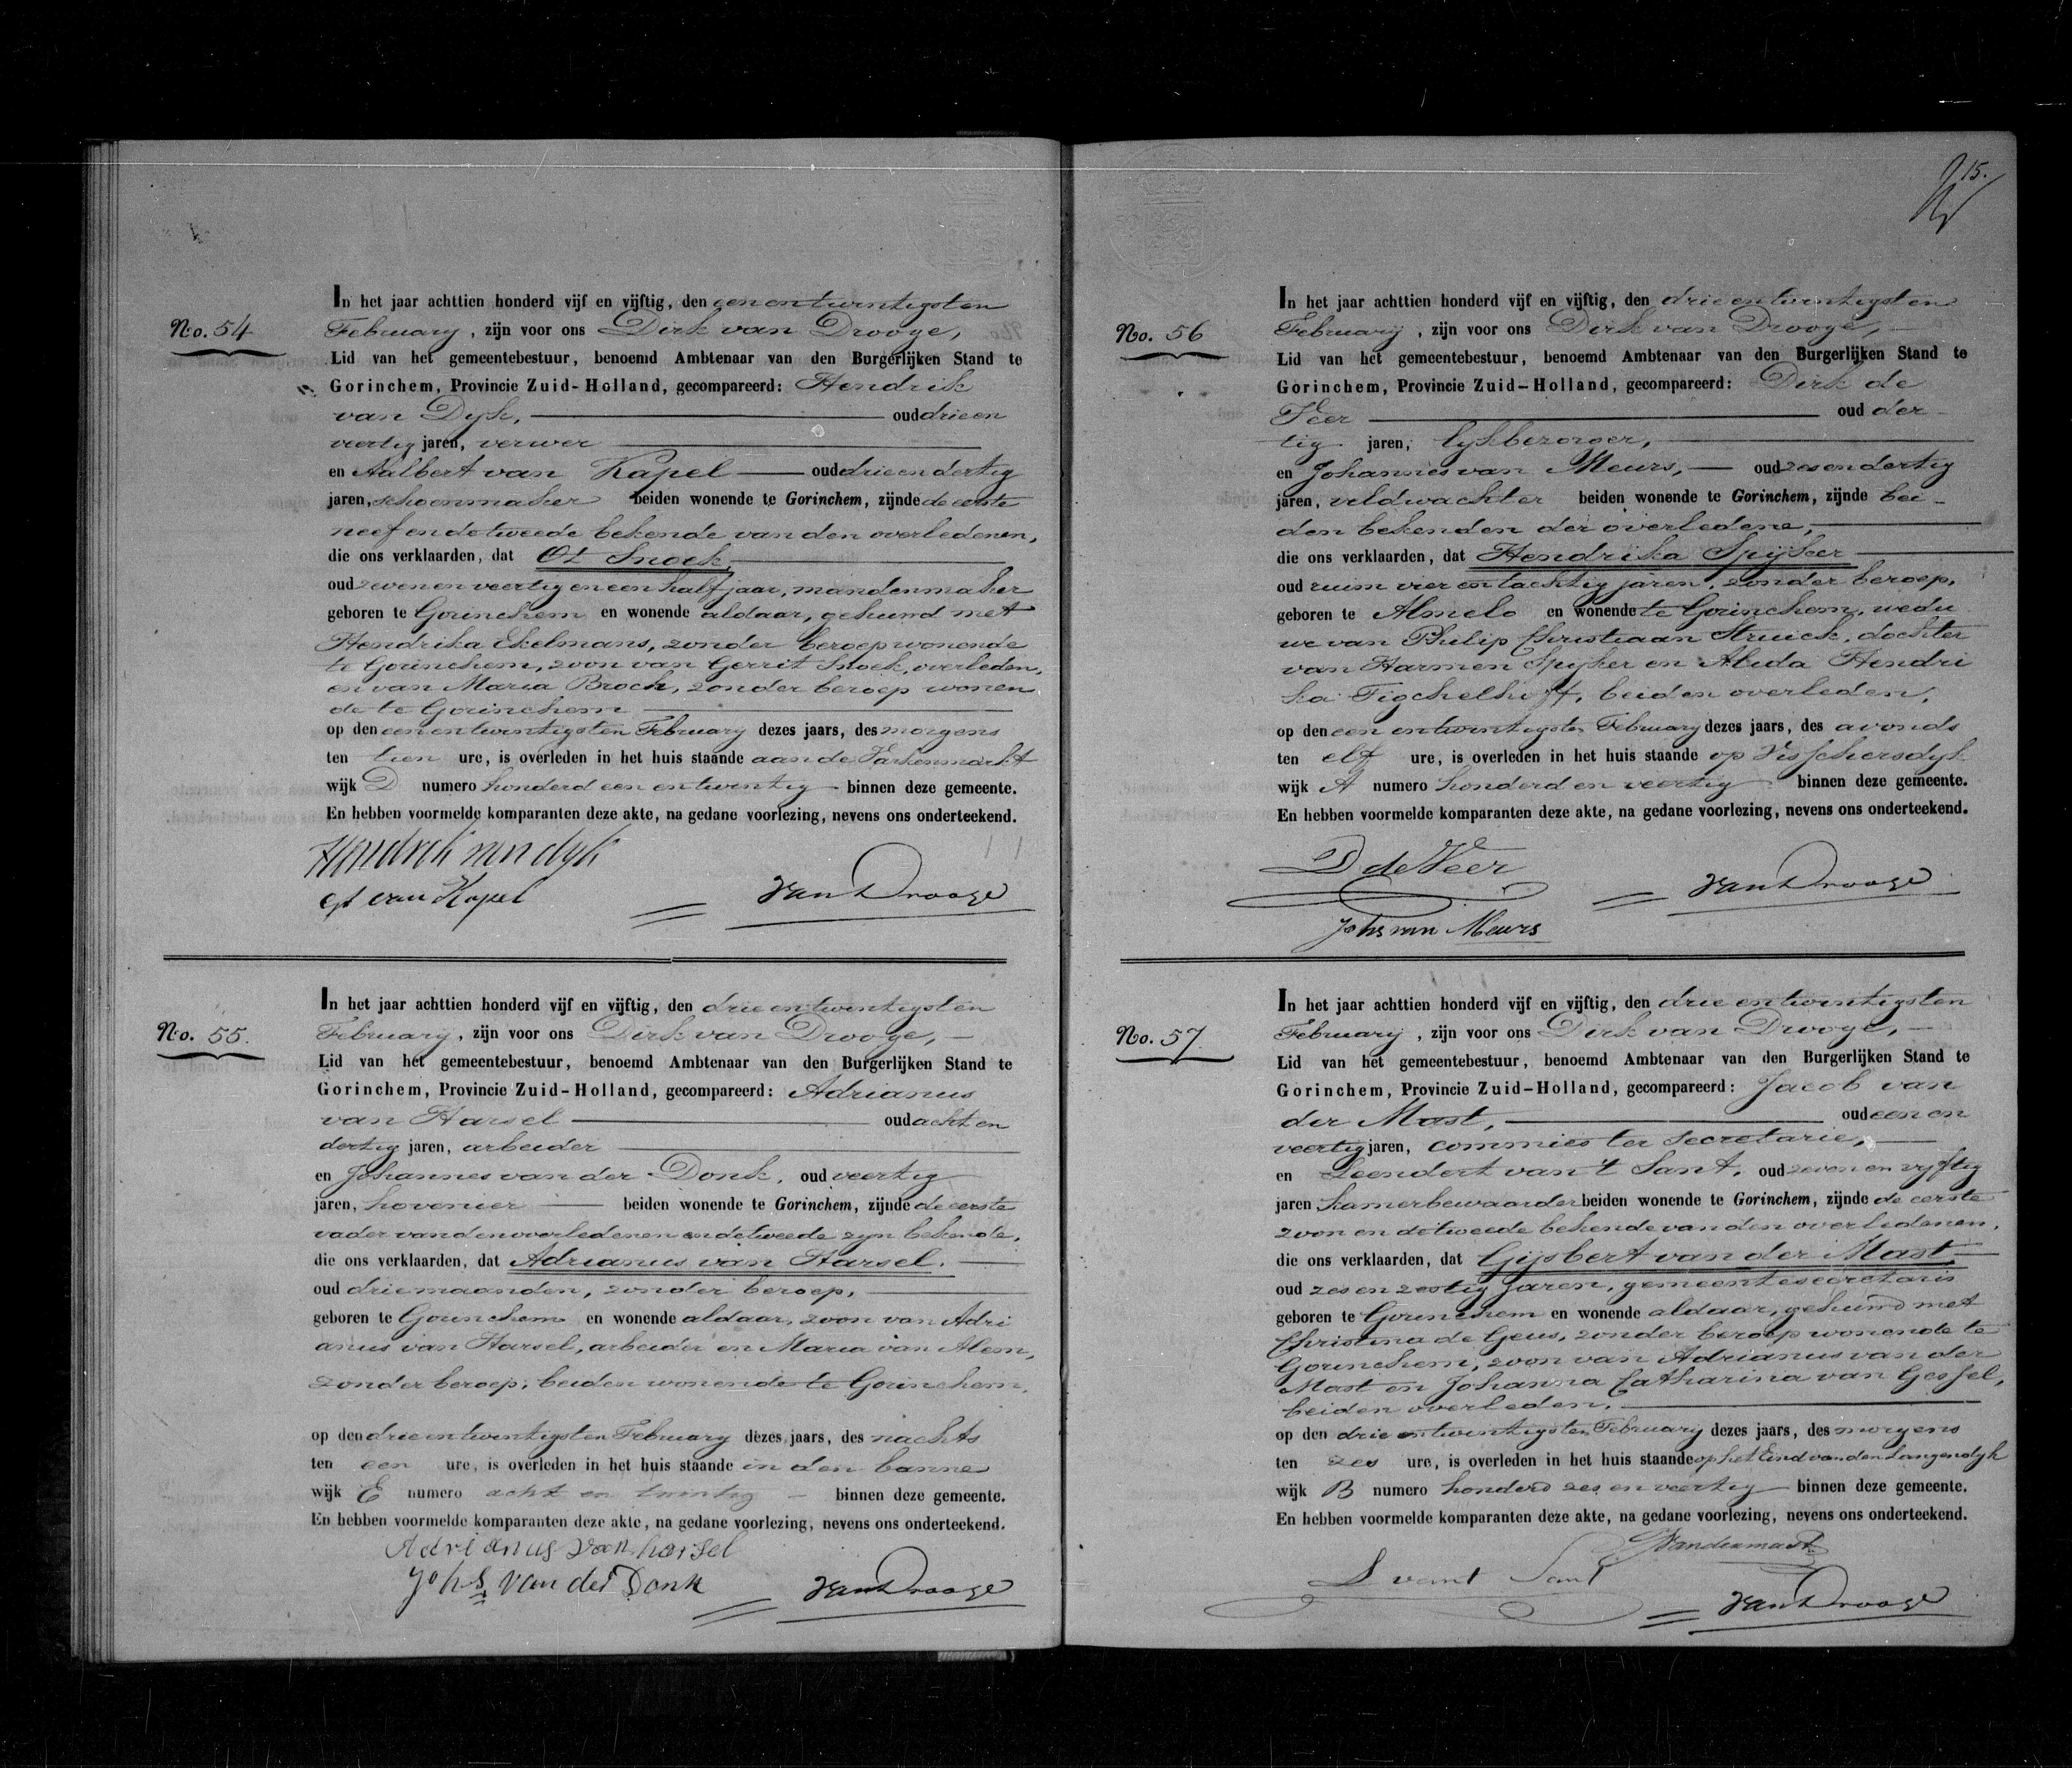 No. 54
In het jaar achttien honderd vijf en vijftig, den een en twintigsten
February, zijn voor ons Dirk van Drooge,
Lid van het gemeentebestuur, benoemd Ambtenaar van den Burgerlijken Stand te
Gorinchem, Provincie Zuid-Holland, gecompareerd: Hendrik
van Dyk, oud drie en
veertig jaren, verwer
en Aalbert van Kapel oud drie en dertig
jaren, schoenmaker beiden wonende te Gorinchem, zijnde de eerste
neef en de tweede bekende van den overledenen,
die ons verklaarden, dat Ot Snoek,
oud zeven en veertig en een half jaar, mandenmaker
geboren te Gorinchem en wonende aldaar, gehuwd met
Hendrika Ekelmans, zonder beroep wonende
te Gorinchem, zoon van Gerrit Snoek, overleden,
en van Maria Brock, zonder beroep wonen
de te Gorinchem
op den een en twintigsten February dezes jaars, des morgens
ten tien ure, is overleden in het huis staande aan de Varkenmarkt
wijk D numero honderd een en twintig binnen deze gemeente.
En hebben voormelde komparanten deze akte, na gedane voorlezing, nevens ons onderteekend.
Hendrik van dyk
van Kapel
van Drooge
No. 55.
In het jaar achttien honderd vijf en vijftig, den drie en twintigsten
February, zijn voor ons Dirk van Drooge,
Lid van het gemeentebestuur, benoemd Ambtenaar van den Burgerlijken Stand te
Gorinchem, Provincie Zuid-Holland, gecompareerd: Adrianus
van Harsel oud acht en
dertig jaren, arbeider
en Johannes van der Donk, oud veertig
jaren, hovenier beiden wonende te Gorinchem, zijnde de eerste
vader van den overledenen en de tweede zyn bekende,
die ons verklaarden, dat Adrianus van Harsel,
oud drie maanden, zonder beroep,
geboren te Gorinchem en wonende aldaar, zoon van Adri
anus van Harsel, arbeider en Maria van Alem,
zonder beroep, beiden wonende te Gorinchem,
op den drie en twintigsten February dezes jaars, des nachts
ten een ure, is overleden in het huis staande in den banne
wijk E numero acht en twintig binnen deze gemeente.
En hebben voormelde komparanten deze akte, na gedane voorlezing, nevens ons onderteekend.
Adrianus van harsel
Johs van der Donk
van Drooge
15.
No. 56
In het jaar achttien honderd vijf en vijftig, den drie en twintigsten
February, zijn voor ons Dirk van Drooge,
Lid van het gemeentebestuur, benoemd Ambtenaar van den Burgerlijken Stand te
Gorinchem, Provincie Zuid-Holland, gecompareerd: Dirk de
Veer oud der
tig jaren, lykbezorger,
en Johannes van Meurs, oud zes en dertig
jaren, veldwachter beiden wonende te Gorinchem, zijnde bei
den bekenden der overledene,
die ons verklaarden, dat Hendrika Spijker
oud ruim vier en tachtig jaren, zonder beroep,
geboren te Almelo en wonende te Gorinchem, wedu
we van Philip Christiaan Struick, dochter
van Harmen Spyker en Aleida Hendri
ka Tigchelhoff, beiden overleden,
op den een en twintigsten February dezes jaars, des avonds
ten elf ure, is overleden in het huis staande op Visschersdyk
wijk A numero honderd en veertig binnen deze gemeente.
En hebben voormelde komparanten deze akte, na gedane voorlezing, nevens ons onderteekend.
D de Veer
Johs van Meurs
van Drooge
No. 57
In het jaar achttien honderd vijf en vijftig, den drie en twintigsten
February, zijn voor ons Dirk van Drooge,
Lid van het gemeentebestuur, benoemd Ambtenaar van den Burgerlijken Stand te
Gorinchem, Provincie Zuid-Holland, gecompareerd: Jacob van
der Mast, oud een en
veertig jaren, commies ter secretarie,
en Leendert van 't Sant, oud zeven en vyftig
jaren kamerbewaarder beiden wonende te Gorinchem, zijnde de eerste
zoon en de tweede bekende van den overledenen,
die ons verklaarden, dat Gijsbert van der Mast
oud zes en zestig jaren, gemeentesecretaris
geboren te Gorinchem en wonende aldaar, gehuwd met
Christina de Geus, zonder beroep wonende te
Gorinchem, zoon van Adrianus van der
Mast en Johanna Catharina van Gessel,
beiden overleden.
op den drie en twintigsten February dezes jaars, des morgens
ten zes ure, is overleden in het huis staande op het Eind van den Langendyk
wijk B numero honderd zes en veertig binnen deze gemeente.
En hebben voormelde komparanten deze akte, na gedane voorlezing, nevens ons onderteekend.
Vandermast
L vant Sant
van Drooge